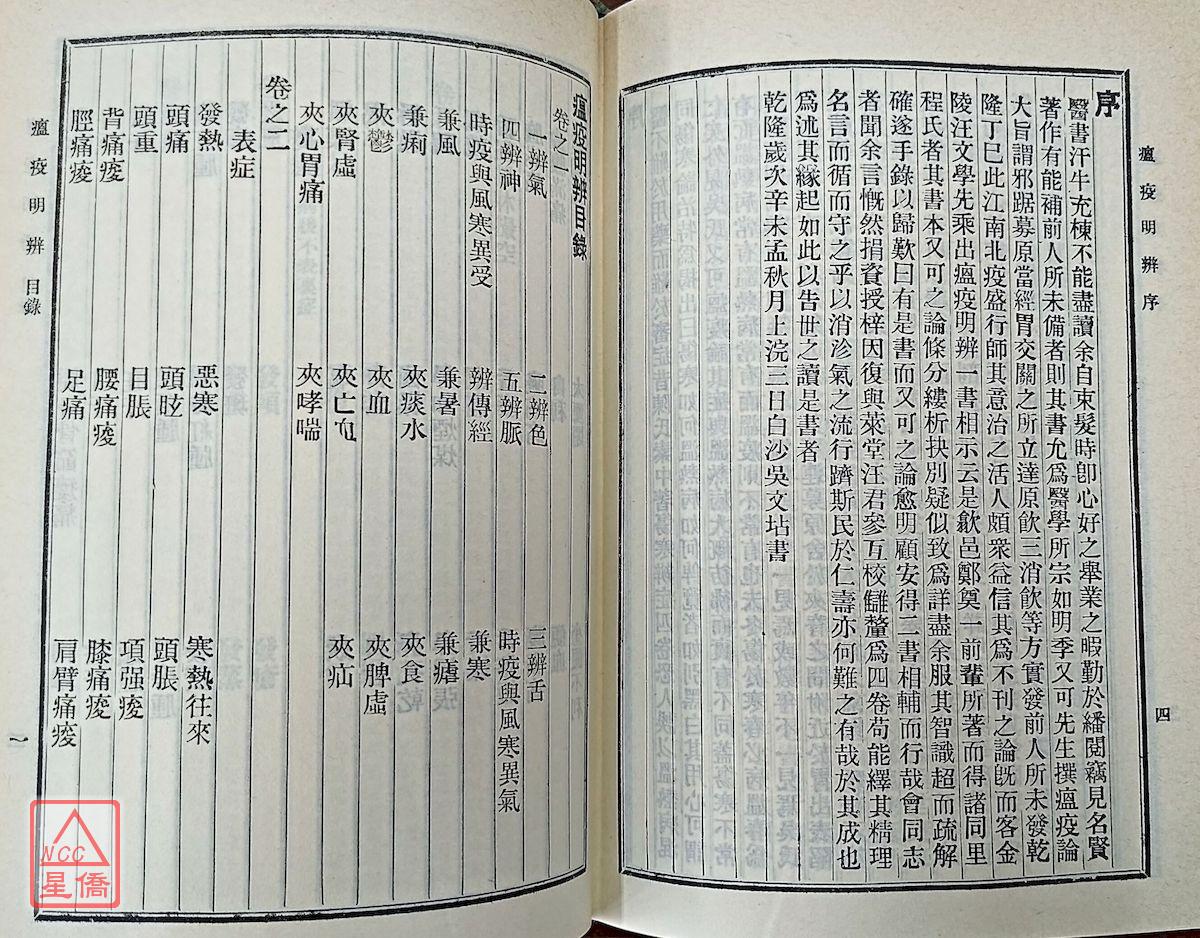 瘟疫明辨 序
四
序
醫書汗牛充棟不能盡讀余自束髮時卽心好之舉業之暇勤於繙閱竊見名賢
著作有能補前人所未備者則其書允爲醫學所宗如明季又可先生撰瘟疫論
大旨謂邪踞募原當經胃交關之所立達原飲三消飲等方實發前人所未發乾
隆丁巳此江南北疫盛行師其意治之活人頗衆益信其爲不刊之論旣而客金
陵汪文學先乘出瘟疫明辨一書相示云是歙邑鄭奠一前輩所著而得諸同里
程氏者其書本又可之論條分縷析抉別疑似致爲詳盡余服其智識超而疏解
確遂手錄以歸歎曰有是書而又可之論愈明顧安得二書相輔而行哉會同志
者聞余言慨然捐資授梓因復與萊堂汪君參互校讎釐爲四卷苟能繹其精理
名言而循而守之乎以消沴氣之流行躋斯民於仁壽亦何難之有哉於其成也
爲述其緣起如此以吿世之讀是書者
乾隆歲次辛未孟秋月上浣三日白沙吳文坫書
瘟疫明辨目錄
卷之一
一辨氣 二辨色 三辨舌
四辨神 五辨脈 時疫與風寒異氣
時疫與風寒異受 辨傳經 兼寒
兼風 兼暑 兼瘧
兼痢 夾痰水 夾食
夾鬱 夾血 夾脾虛
夾腎虛 夾亡血 夾疝
夾心胃痛 夾哮喘
卷之二
表症
發熱 惡寒 寒熱往來
頭痛 頭眩 頭脹
頭重 目脹 項强痠
背痛痠 腰痛痠 膝痛痠
脛痛痠 足痛 肩臂痛痠
瘟疫明辨 目錄
一
NCC
星僑